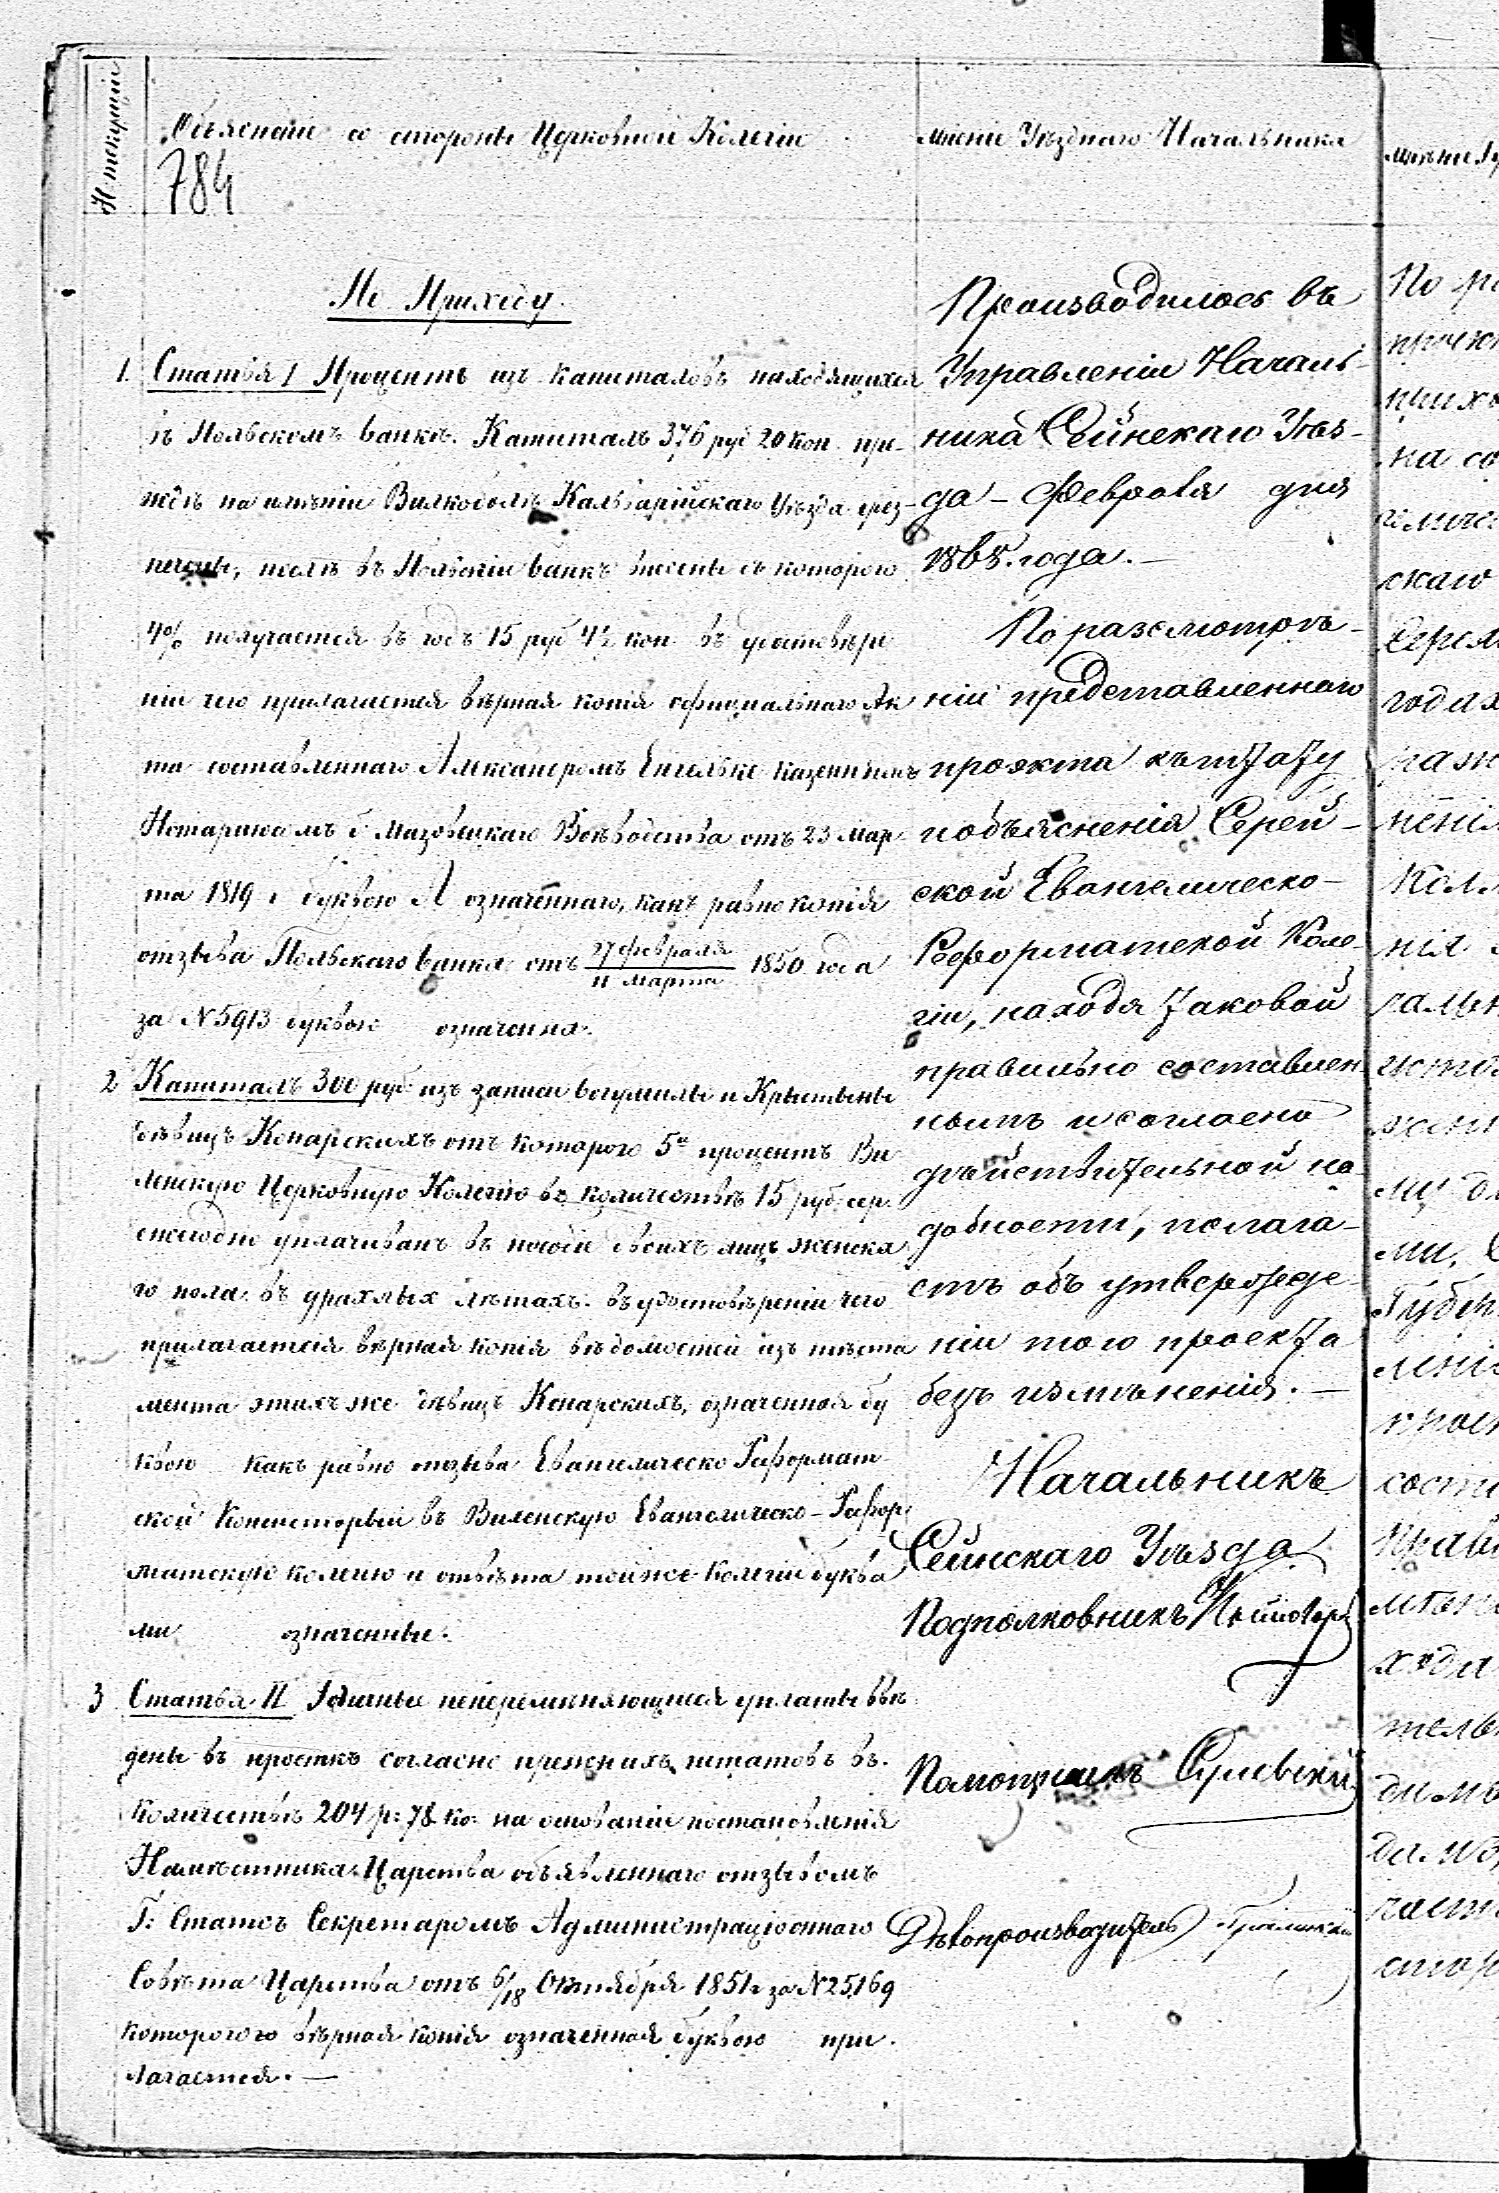 № текущій
Объясненіе со стороны Церковной Колегіи
784
По Приходу.
1. Статья I Процентъ изъ капиталовъ находящихся
въ Польскомъ банкѣ. Капиталъ 376 руб 20 коп. пре-
жде на имѣніи Вилкоболъ Кальварійскаго Уѣзда
въ Польскій банкъ внесенъ съ котораго
4% получается въ годъ 15 руб 4½ коп. въ удостовѣре
ніи чего прилагается вѣрная копія офиціальнаго Ак
та составленнаго Александромъ Енгельке казеннымъ
Нотаріюсомъ б. Мазовецкаго Воеводства отъ 23 мар
та 1819 г буквою А означеннаго, какъ равно копія
отзыва Польскаго банка отъ 27 февраля / 11 марта 1850 года
за N 5913 буквою означенна.
2 Капиталъ 300 руб изъ записи Богумилы и Крыстыны
дѣвицъ Конарскихъ отъ котораго 5й процентъ Ви
ленскую Церковную Колегію въ количествѣ 15 руб. сер.
ежегодно уплачиванъ въ пособіе двоихъ лицъ женска
го пола въ драхлыхъ лѣтахъ. въ удостовѣреніи чего
прилагается вѣрная копія вѣдомостей изъ
мента этихъ же дѣвицъ Конарскихъ, означенная бу
квою какъ равно отзыва Евангелическо Реформат
ской Консисторыи въ Виленскую Евангелическо-Рефор
матскую колегію и отвѣта тойже Колегіи буква
ми означенные.
3 Статья II Годичные неперемѣняющіеся уплаты
дены въ проэктъ согласно прежнихъ штатовъ въ
количествѣ 204 р: 78 ко: на основаніи постановленія
Намѣстника Царства объявленнаго отзывомъ
Г: Статсъ Секретаромъ Администраціоннаго
Совѣта Царства отъ 6/18 Октября 1851 г за N 25,169
которогого вѣрная копія означенная буквою при
лагается.—
мнѣніе Уѣзднаго Начальника
Производилось въ
Управленіи Началь-
ника Сейнскаго Уѣз-
да - Февраля дня
1868. года.—
По разсмотрѣ-
ніи представленнаго
проэкта къ штату
и объясненія Серей-
ской Евангелическо-
Реформатской Коле-
гіи, находя таковой
правильно составлен
нымъ и согласно
дѣйствительной на-
добности, полага-
етъ объ утвержде-
ніи того проекта
безъ измѣненія.—
Начальникъ
Сейнскаго Уѣзда
Подполковникъ
Помощникъ
Дѣлопроизводитель
мнѣніе Гу
По ра
прик
на со
скаго
годах
Кол
нія
Губер
леніе